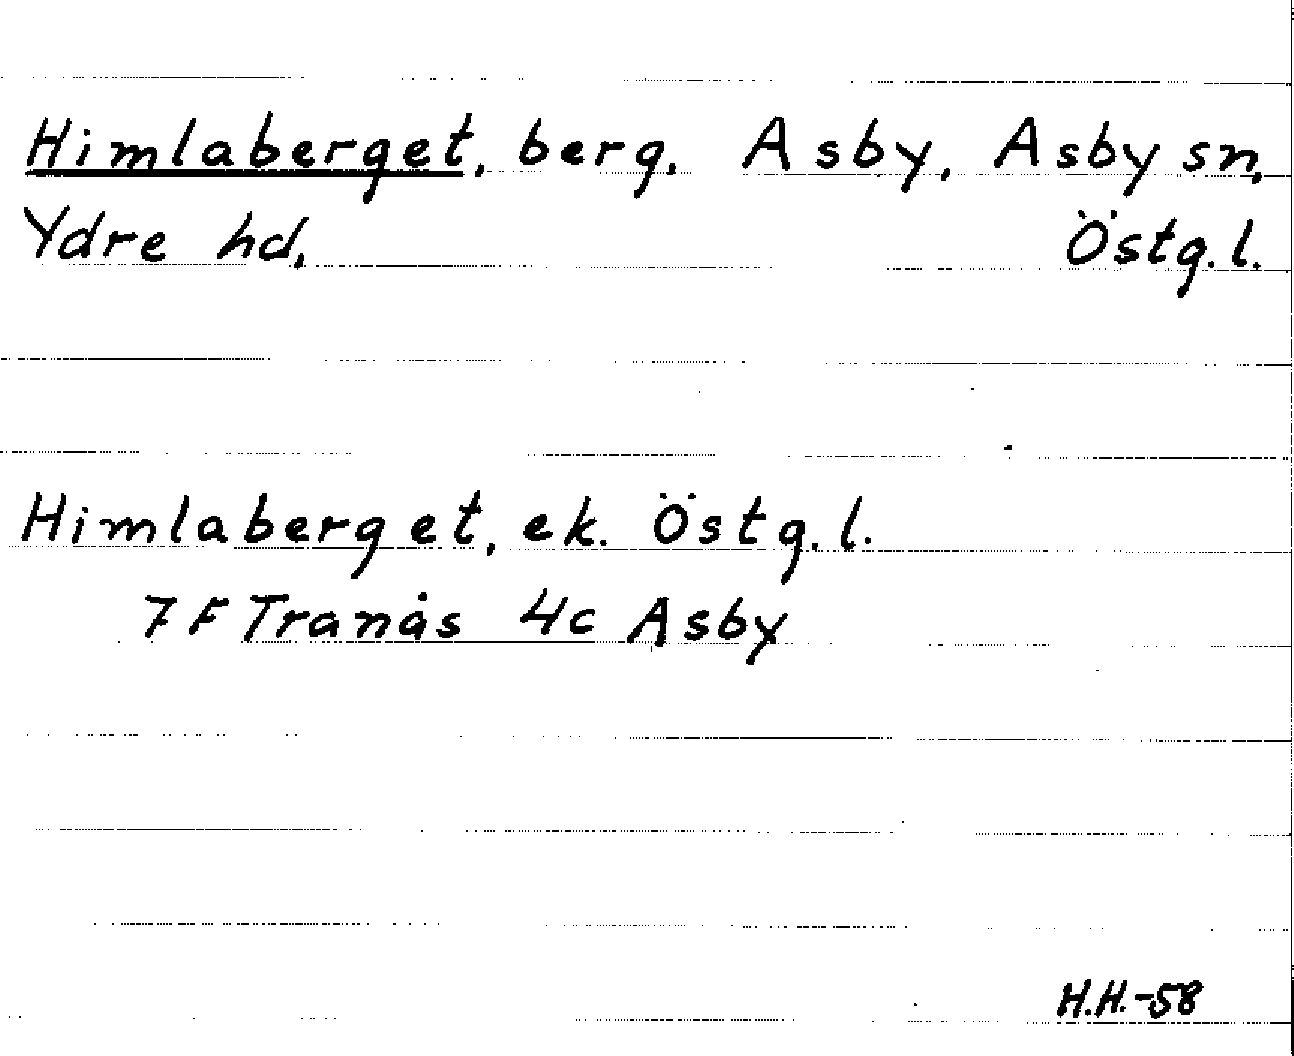 Himlaberget, berg, Asby, Asby sn,
Ydre hd, Östg.l.
Himlaberget, ek. Östg.l.
7F Tranås 4c Asby
H.H.-58